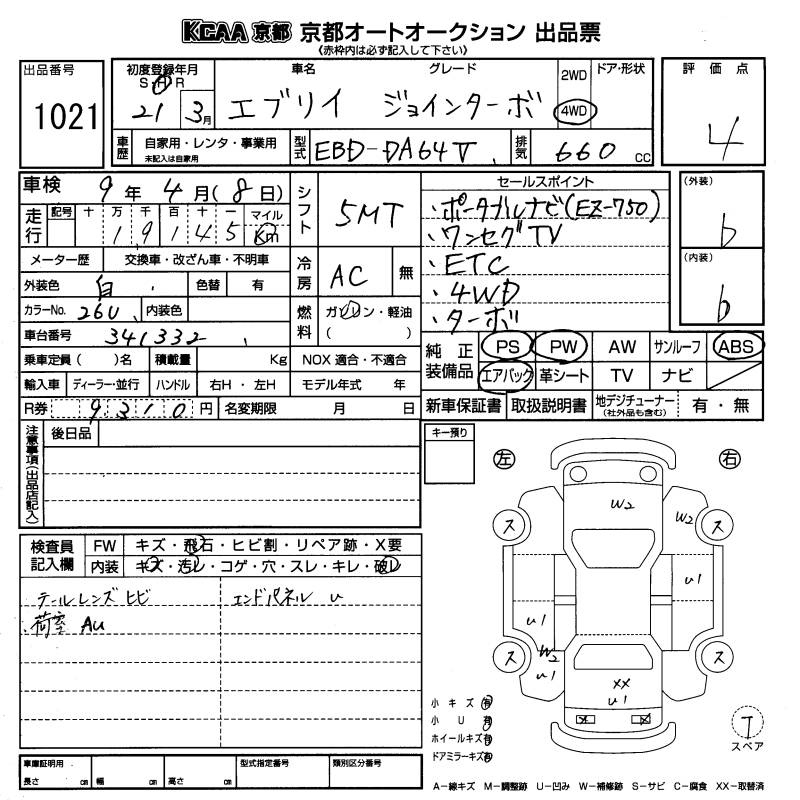 KCAA 京都 京都オートオークション 出品票
《赤枠内は必ず記入して下さい》
出品番号 1021
初度登録年月 S・H・R 21 3月
車名 エブリイ
グレード ジョインターボ
2WD 4WD
ドア・形状
評価点 4
車歴 自家用・レンタ・事業用 未記入は自家用
型式 EBD-DA64V
排気 660 cc
車検 9年4月(8日)
シフト 5MT
セールスポイント
・ポータブルナビ(EZ-750)
・ワンセグTV
・ETC
・4WD
・ターボ
(外装) b
(内装) b
走行 記号 十 万 千 百 十 一 マイル Km
1 9 1 4 5
メーター歴 交換車・改ざん車・不明車
冷房 AC 無
外装色 白 色替 有
カラーNo. 26U 内装色
燃料 ガソリン・軽油 ( )
車台番号 341332
乗車定員( )名 積載量 Kg NOX 適合・不適合
輸入車 ディーラー・並行 ハンドル 右H・左H モデル年式 年
R券 9310円 名変期限 月 日
純正装備品 PS PW AW サンルーフ ABS
エアバック 革シート TV ナビ
新車保証書 取扱説明書 地デジチューナー (社外品も含む) 有・無
注意事項(出品店記入)
後日品
キー預り
左 右
検査員記入欄 FW キズ・飛石・ヒビ割・リペア跡・X要
内装 キズ・汚レ・コゲ・穴・スレ・キレ・破レ
テールレンズ ヒビ
エンドパネル U
荷室 AU
W2
W2
ス ス
U1
U1
W2
U1
ス ス
XX
U1
X X
小キズ 有
小U 有
ホイールキズ 有
ドアミラーキズ 有
T
スペア
車庫証明用 長さ cm 幅 cm 高さ cm
型式指定番号
類別区分番号
A－線キズ M－調整跡 U－凹み W－補修跡 S－サビ C－腐食 XX－取替済